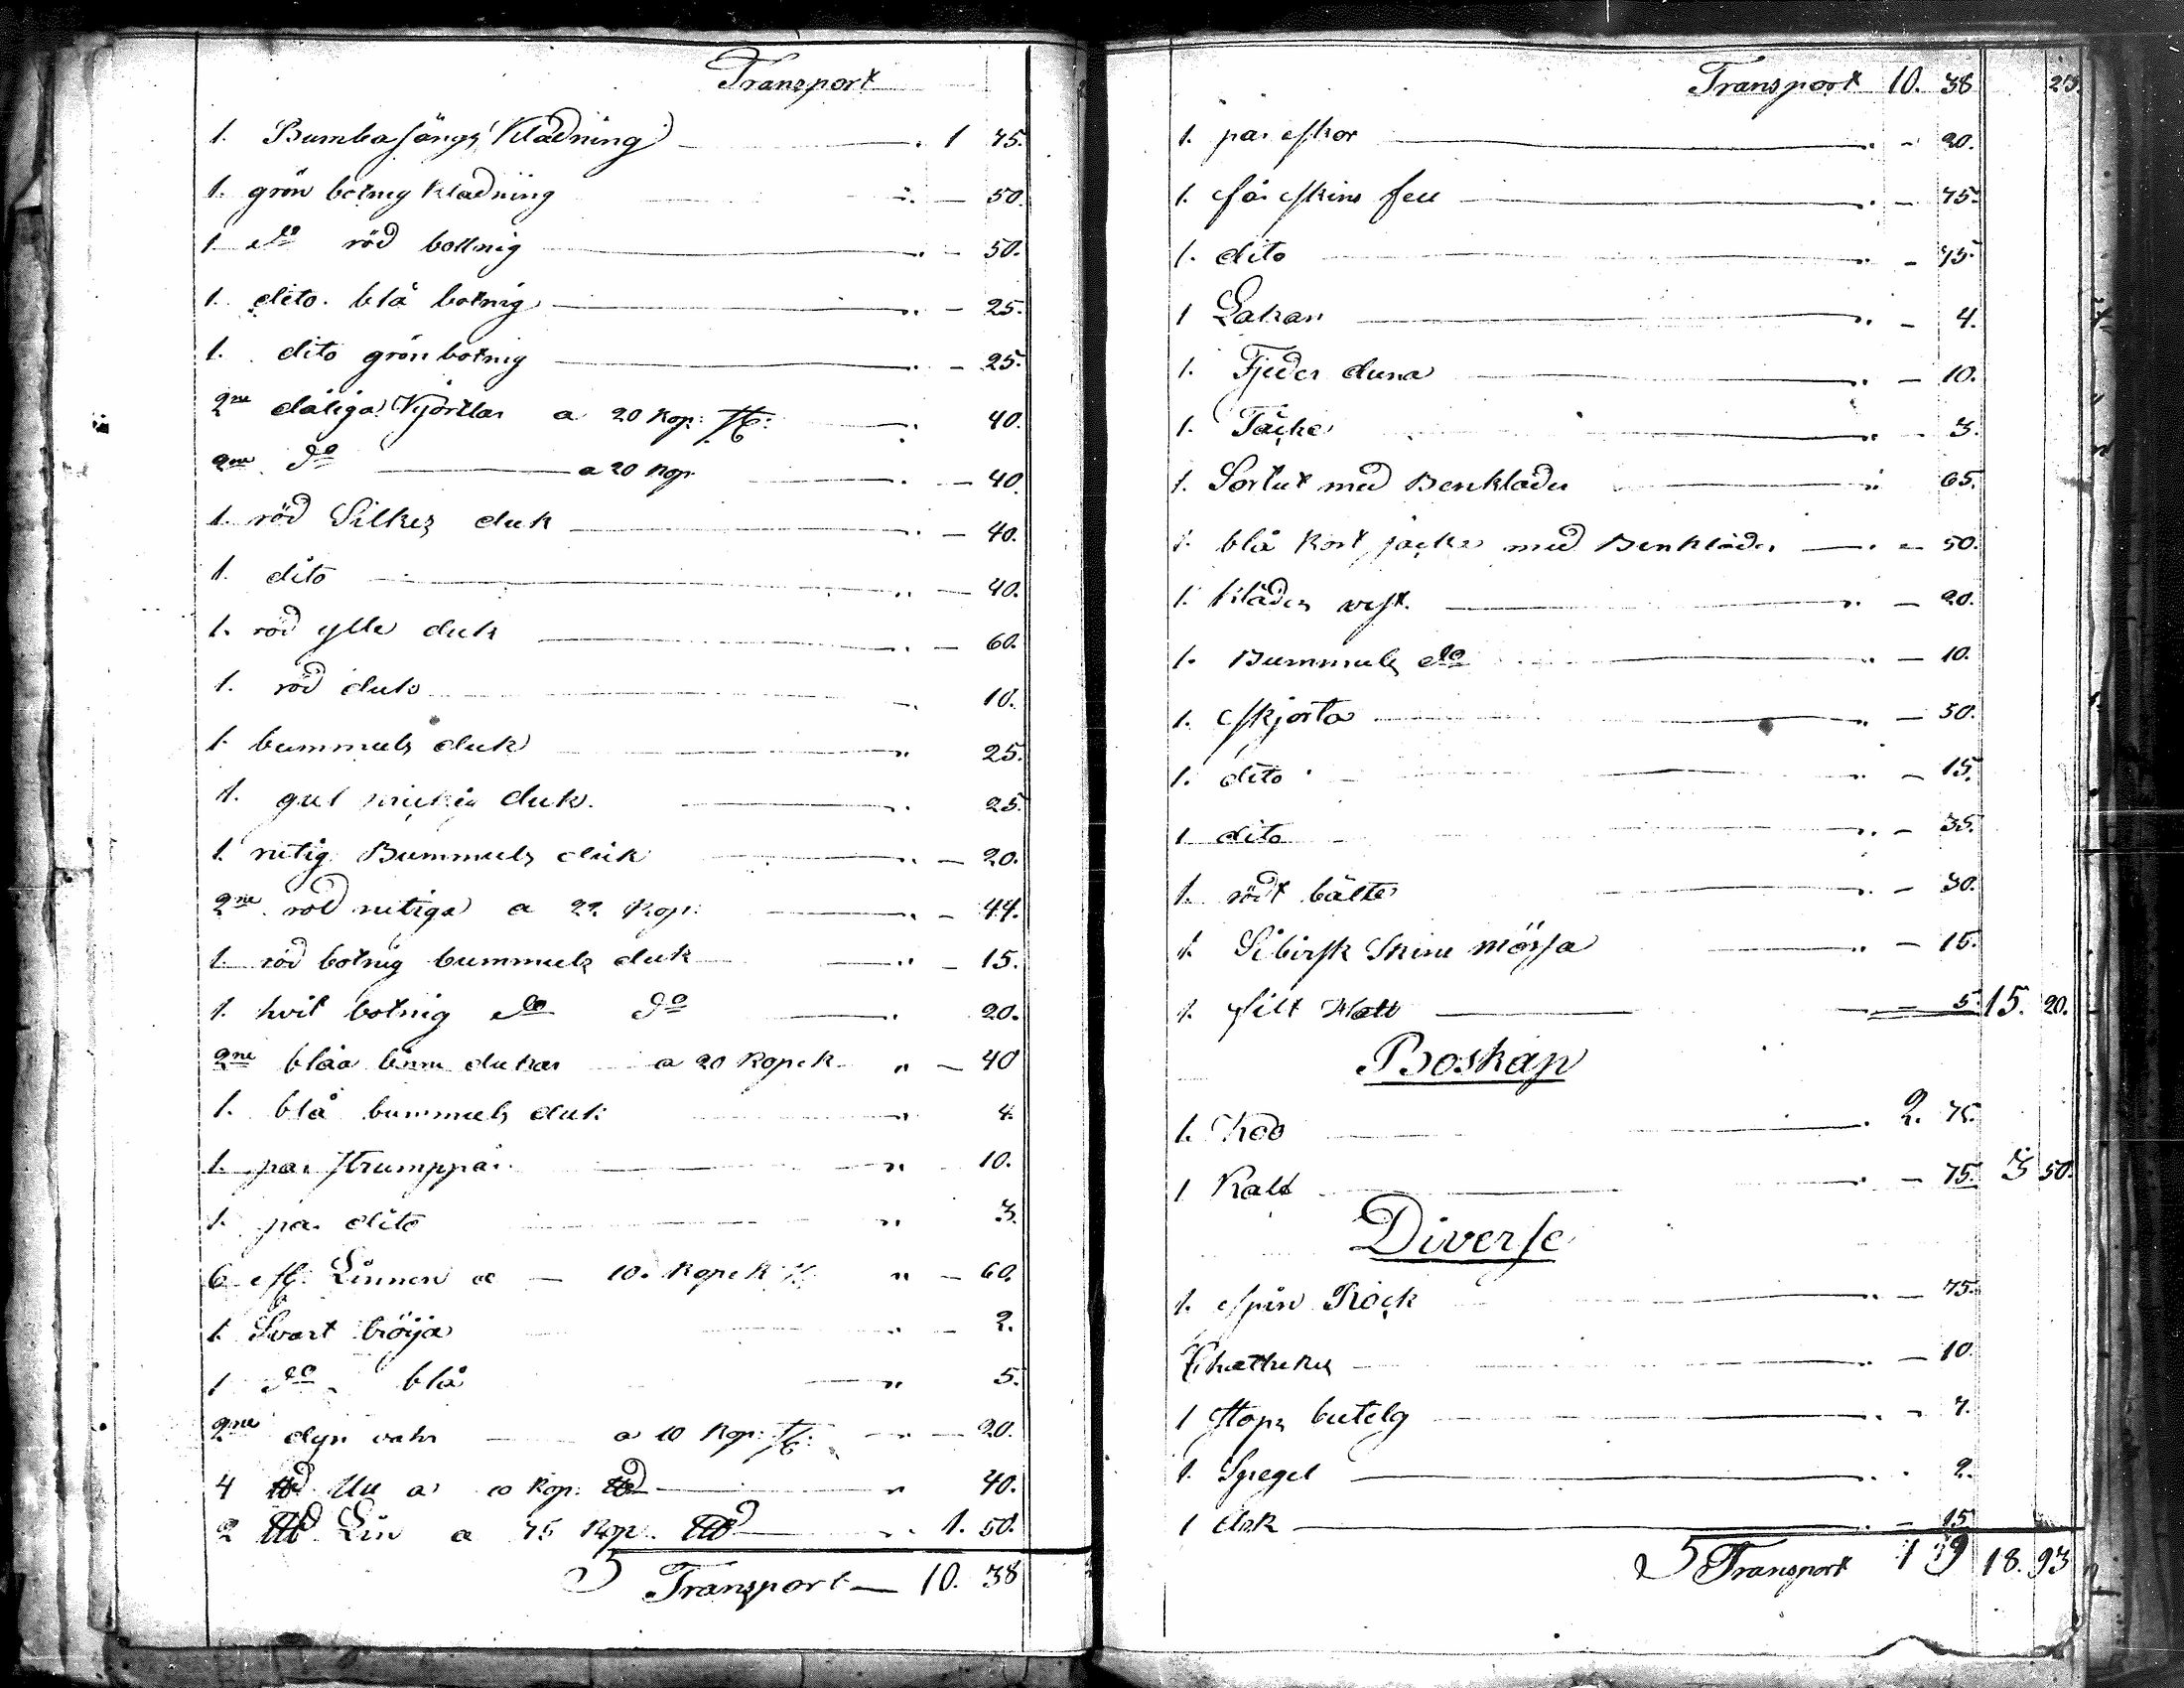 Transport
1. Bumbasängs Klädning . 1 75.
1. grön botnig Klädning — 50.
1 do röd bottnig — 50.
1. dito. blå botnig — 25.
1. dito grön botnig — 25.
2ne dåliga Kjortlar a 20 Kop: st: 40.
2ne do a 20 Kop — 40.
1. röd Silkes duk — 40.
1. dito — 40.
1. röd ylle duk — 60.
1. röd duk 10.
1. bummuls duk 25.
1. gul duk. 25.
1. rutig Bummuls duk — 20.
2ne röd rutiga a 22 Kop: — 44.
1 röd botnig bummuls duk — 15.
1. hvit botnig do do 20.
2ne blåa dukar a 20 Kopek — 40
1. blå bummuls duk 4.
1. par strumppår 10.
1. par dito 3.
6 st. Linnen a — 10. Kopek — 60.
1. Svart tröija — 2.
1 do blå 5.
2ne dyn vahr a 10 Kop: st: — 20.
4 ttd Ull a 10 Kop: ttd 40.
2 ttd Lin a 75 Kop. ttd 1. 50.
Transport — 10. 38
Transport 10. 38 25.
1. par skor — 20.
1. får skins fell — 75.
1. dito — 75.
1 Lakan — 4.
1. Fjeder duna — 10.
1. Täcke 3.
1. Sortut med Benkläder 65.
1. blå kort jacka med Benkläder — 50.
1. Klädes vest. — 20.
1. Bummuls do — 10.
1. skjorta — 50.
1. dito — 15.
1 dito — 35.
1. rödt bälte — 30.
1. Sibirsk Skins mössa — 15.
1. filt Hatt 5. 15. 20.
Boskap
1. Koo 2. 75.
1 Kalf — 75. 3 50.
Diverse
1. spin Rock — 75.
— 10.
1 stops butelg — 7.
1. Spegel 2.
1 — 15
Transport 1 9 18. 93